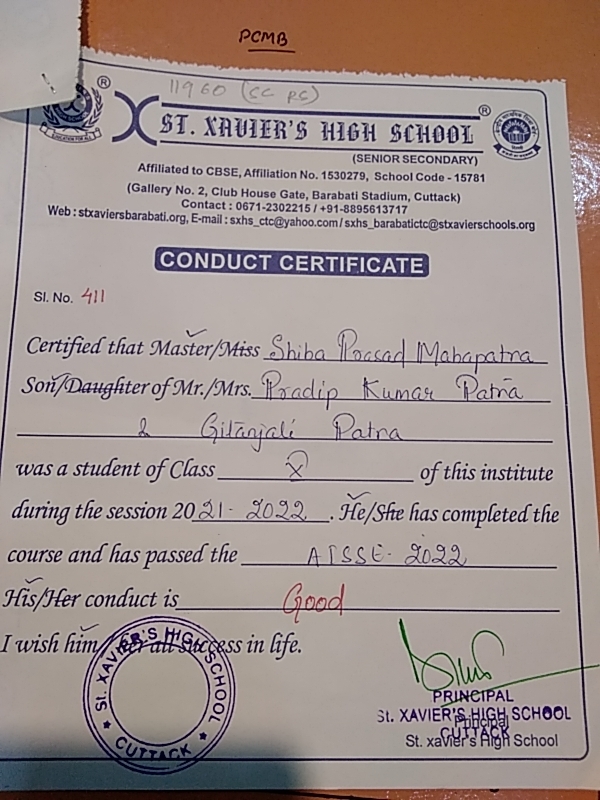 PCMB
11960 (SC RS)
ST. XAVIER'S HIGH SCHOOL
(SENIOR SECONDARY)
Affiliated to CBSE, Affiliation No. 1530279, School Code - 15781
(Gallery No. 2, Club House Gate, Barabati Stadium, Cuttack)
Contact : 0671-2302215 / +91-8895613717
Web : stxaviersbarabati.org, E-mail : sxhs_ctc@yahoo.com / sxhs_barabatictc@stxavierschools.org
CONDUCT CERTIFICATE
Sl. No. 411
Certified that Master/Miss Shiba Prasad Mahapatra
Son/Daughter of Mr./Mrs. Pradip Kumar Patra
& Gitanjali Patra
was a student of Class X of this institute
during the session 2021-2022. He/She has completed the
course and has passed the AISSE-2022
His/Her conduct is Good
I wish him her all success in life.
St. XAVIER'S HIGH SCHOOL
CUTTACK
PRINCIPAL
St. XAVIER'S HIGH SCHOOL
Principal
CUTTACK
St. xavier's High School